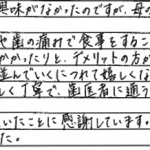 興味がなかったのですが、母の
や歯の痛みで食事をするこ
かかったりと、デメリットの方が
並んでいくにつれて嬉しくな
しく丁寧で、歯医者に通う
いたことに感謝しています。
た。